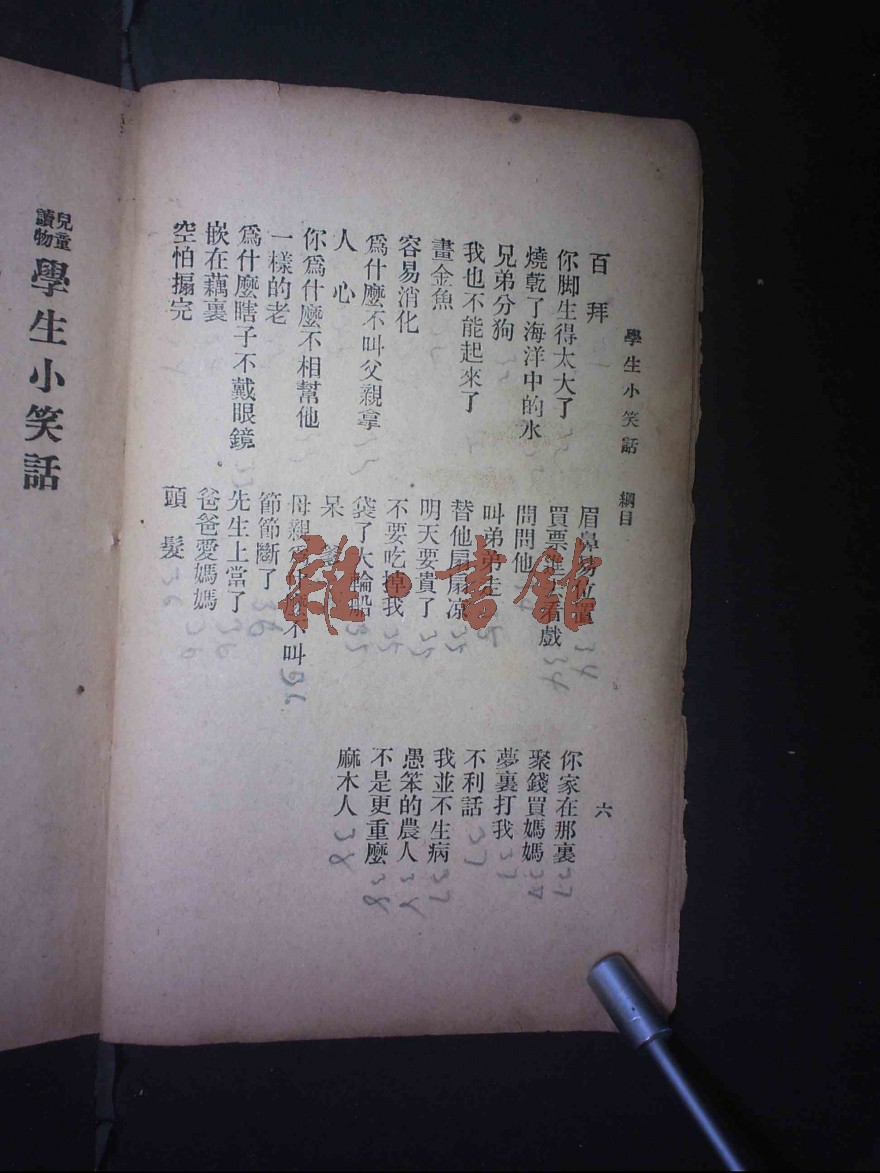 學生小笑話 綱目 六
百拜
你脚生得太大了
燒乾了海洋中的水
兄弟分狗
我也不能起來了
畫金魚
容易消化
爲什麼不叫父親拿
人心
你爲什麼不相幫他
一樣的老
爲什麼瞎子不戴眼鏡
嵌在藕裏
空怕搧完
眉鼻易位置 34
買票 看戲 34
問問他
叫弟弟走
替他扇扇凉 35
明天要貴了 35
不要吃掉我 35
袋了大輪船 35
呆
母親爲什麼不叫 36
節節斷了 36
先生上當了 36
爸爸愛媽媽 36
頭髮 36
你家在那裏 37
聚錢買媽媽 37
夢裏打我 37
不利話 37
我並不生病 37
愚笨的農人
不是更重麼 38
麻木人 38
兒童讀物
學生小笑話
雜·書館